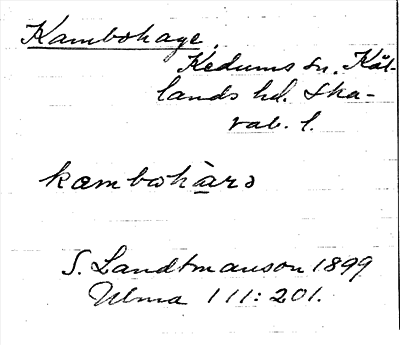 Kambohage.
Kedums sn. Kål-
lands hd. Ska-
rab. l.
kæmbωhàrə
S. Landtmanson 1899
Ulma 111:201.